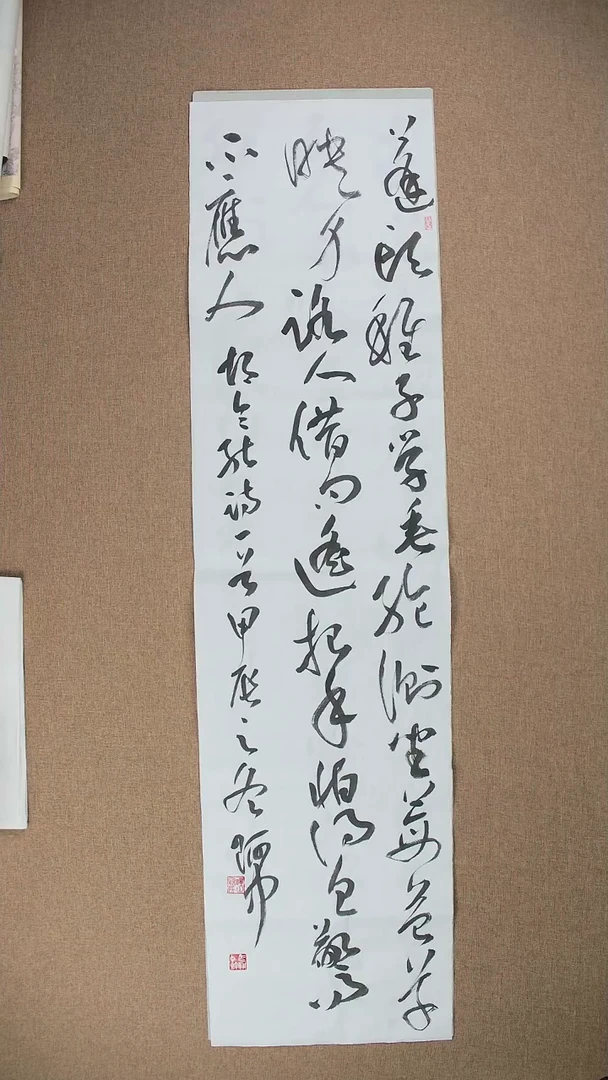 蓬頭稚子學垂綸側坐莓苔草
映身路人借問遙招手怕得魚驚
不應人 胡令能詩一首甲辰之冬